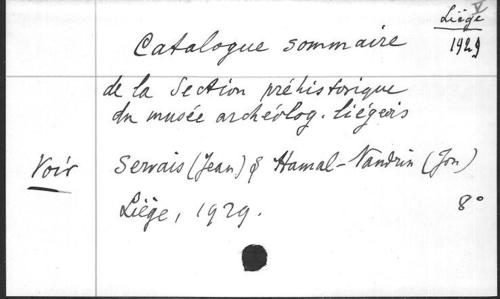 Liège
1929
Catalogue sommaire
de la Section préhistorique
du musée archéolog. liégeois
Voir Servais (Jean) & Hamal-Nandrin (Jos)
Liège, 1929. 8°